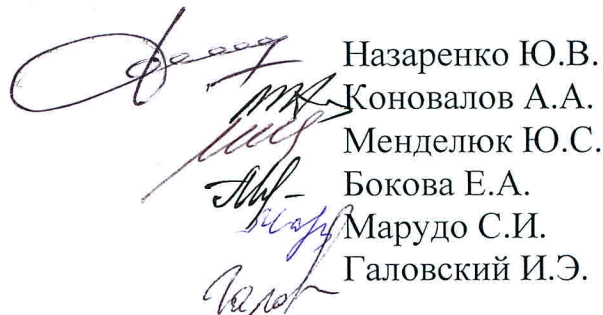 Назаренко Ю.В.
Коновалов А.А.
Менделюк Ю.С.
Бокова Е.А.
Марудо С.И.
Галовский И.Э.